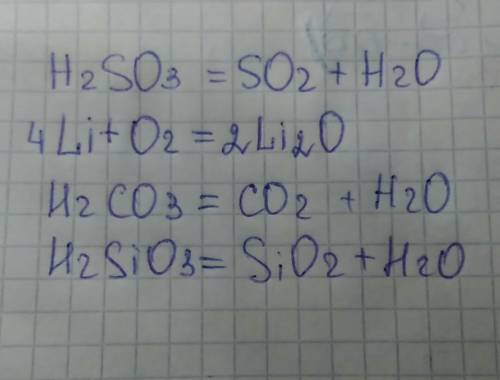 H2SO3 = SO2 + H2O
4Li + O2 = 2Li2O
H2CO3 = CO2 + H2O
H2SiO3 = SiO2 + H2O